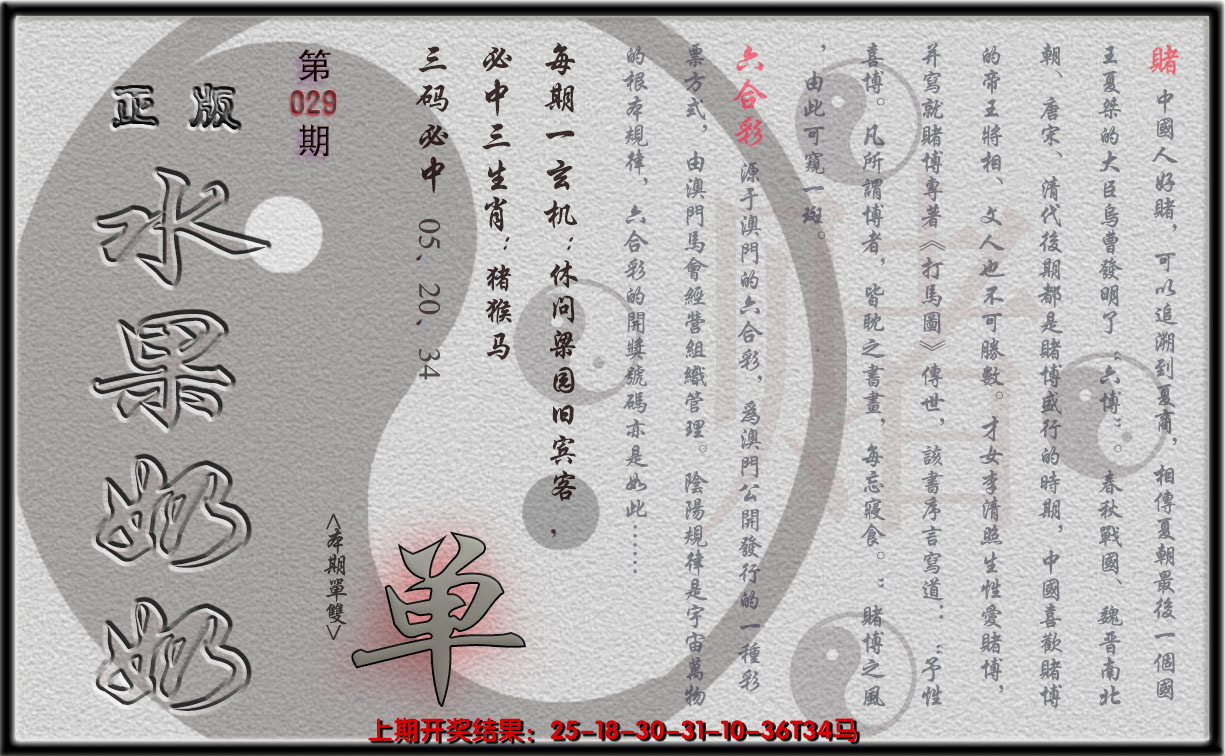 賭 中國人好賭，可以追溯到夏商，相傳夏朝最後一個國
王夏桀的大臣烏曹發明了“六博”。春秋戰國、魏晋南北
朝、唐宋、清代後期都是賭博盛行的時期，中國喜歡賭博
的帝王將相、文人也不可勝數。才女李清照生性愛賭博，
并寫就賭博專著《打馬圖》傳世，該書序言寫道：“予性
喜博。凡所謂博者，皆耽之書畫，每忘寢食。”賭博之風
，由此可窺一斑。
六合彩 源于澳門的六合彩，爲澳門公開發行的一種彩
票方式，由澳門馬會經營組織管理。陰陽規律是宇宙萬物
的根本規律，六合彩的開獎號碼亦是如此……
每期一玄机：休问梁园旧宾客，
必中三生肖：猪猴马
三码必中 05、20、34
第029期
正版
水果奶奶
<本期單雙>
单
上期开奖结果：25-18-30-31-10-36T34马